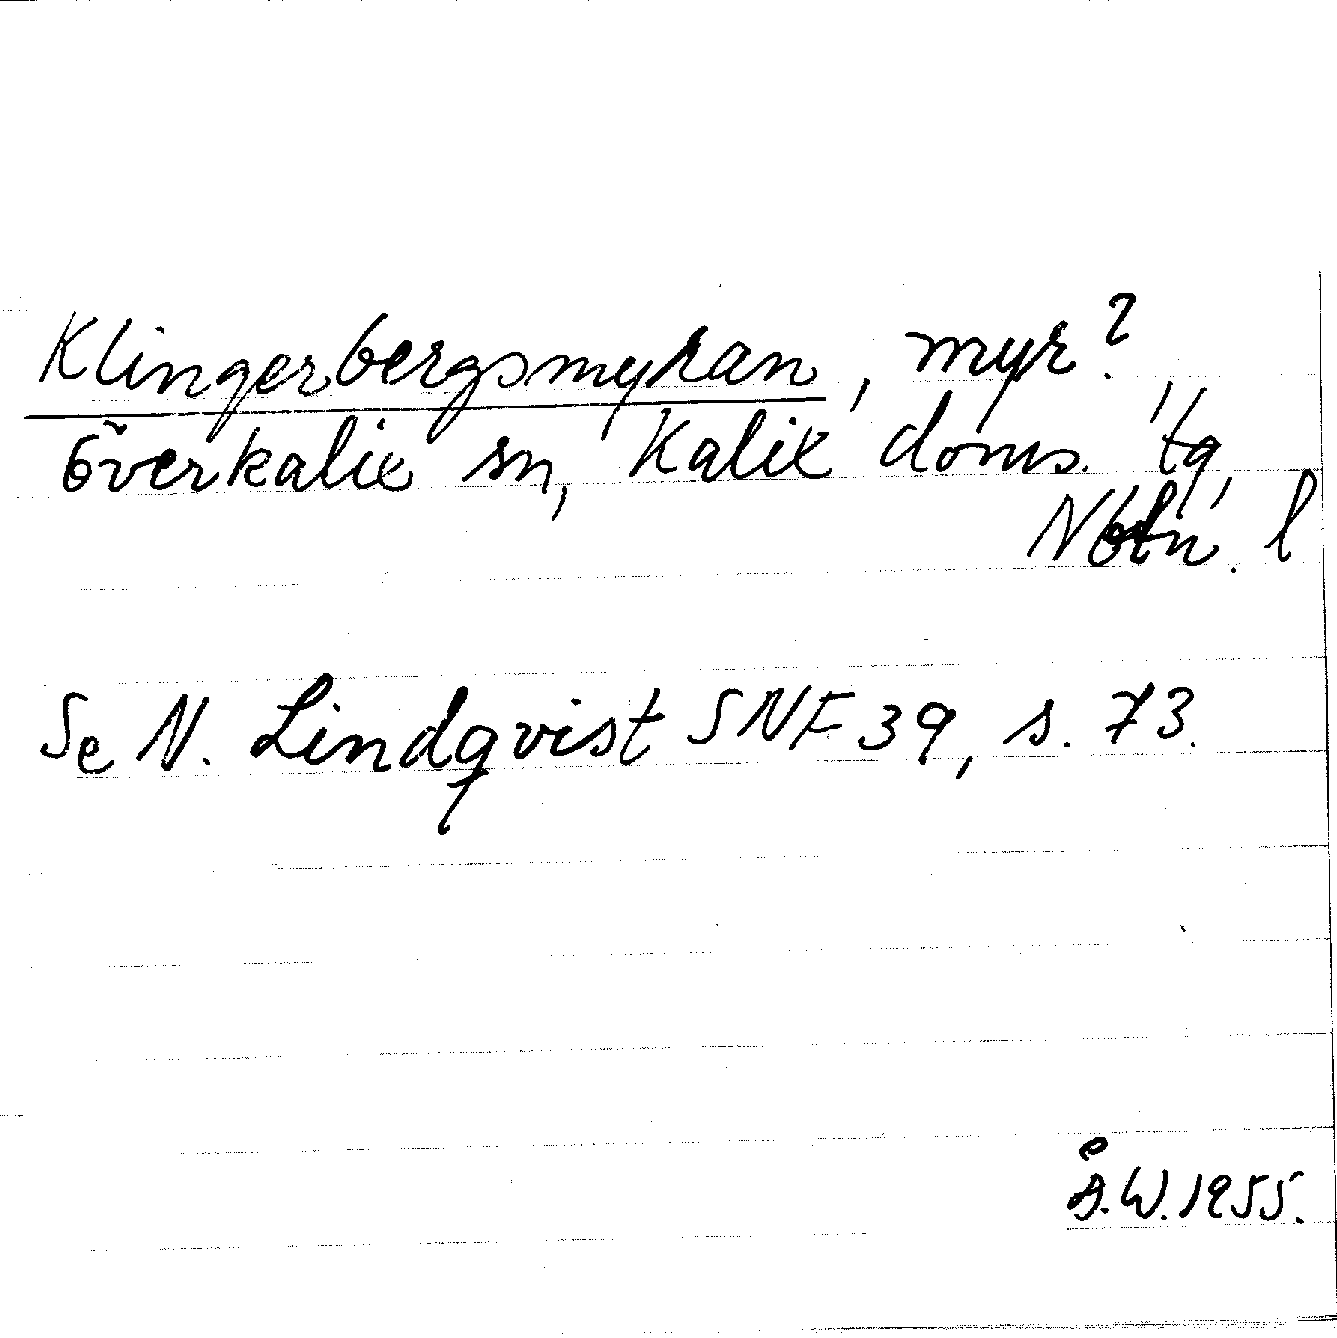 Klingerbergsmyran, myr?
Överkalix sn, Kalix doms. tg,
Nbtn. l
Se N. Lindqvist SNF 39, s. 73.
Å.W. 1955.